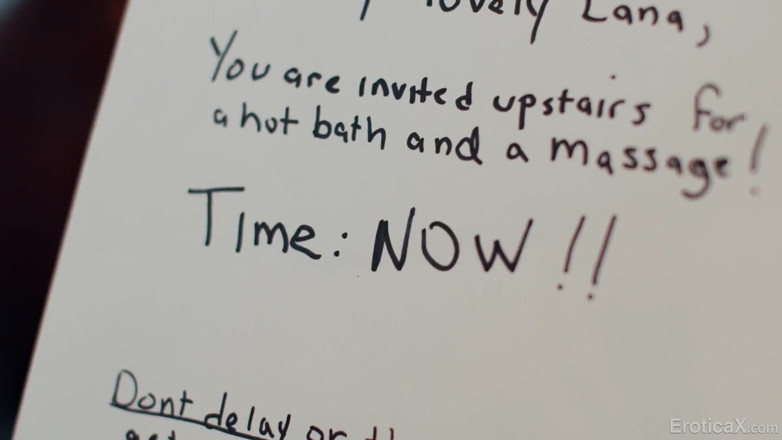 lovely Lana,
You are invited upstairs for
a hot bath and a massage!
Time: NOW!!
Dont delay or
EroticaX.com